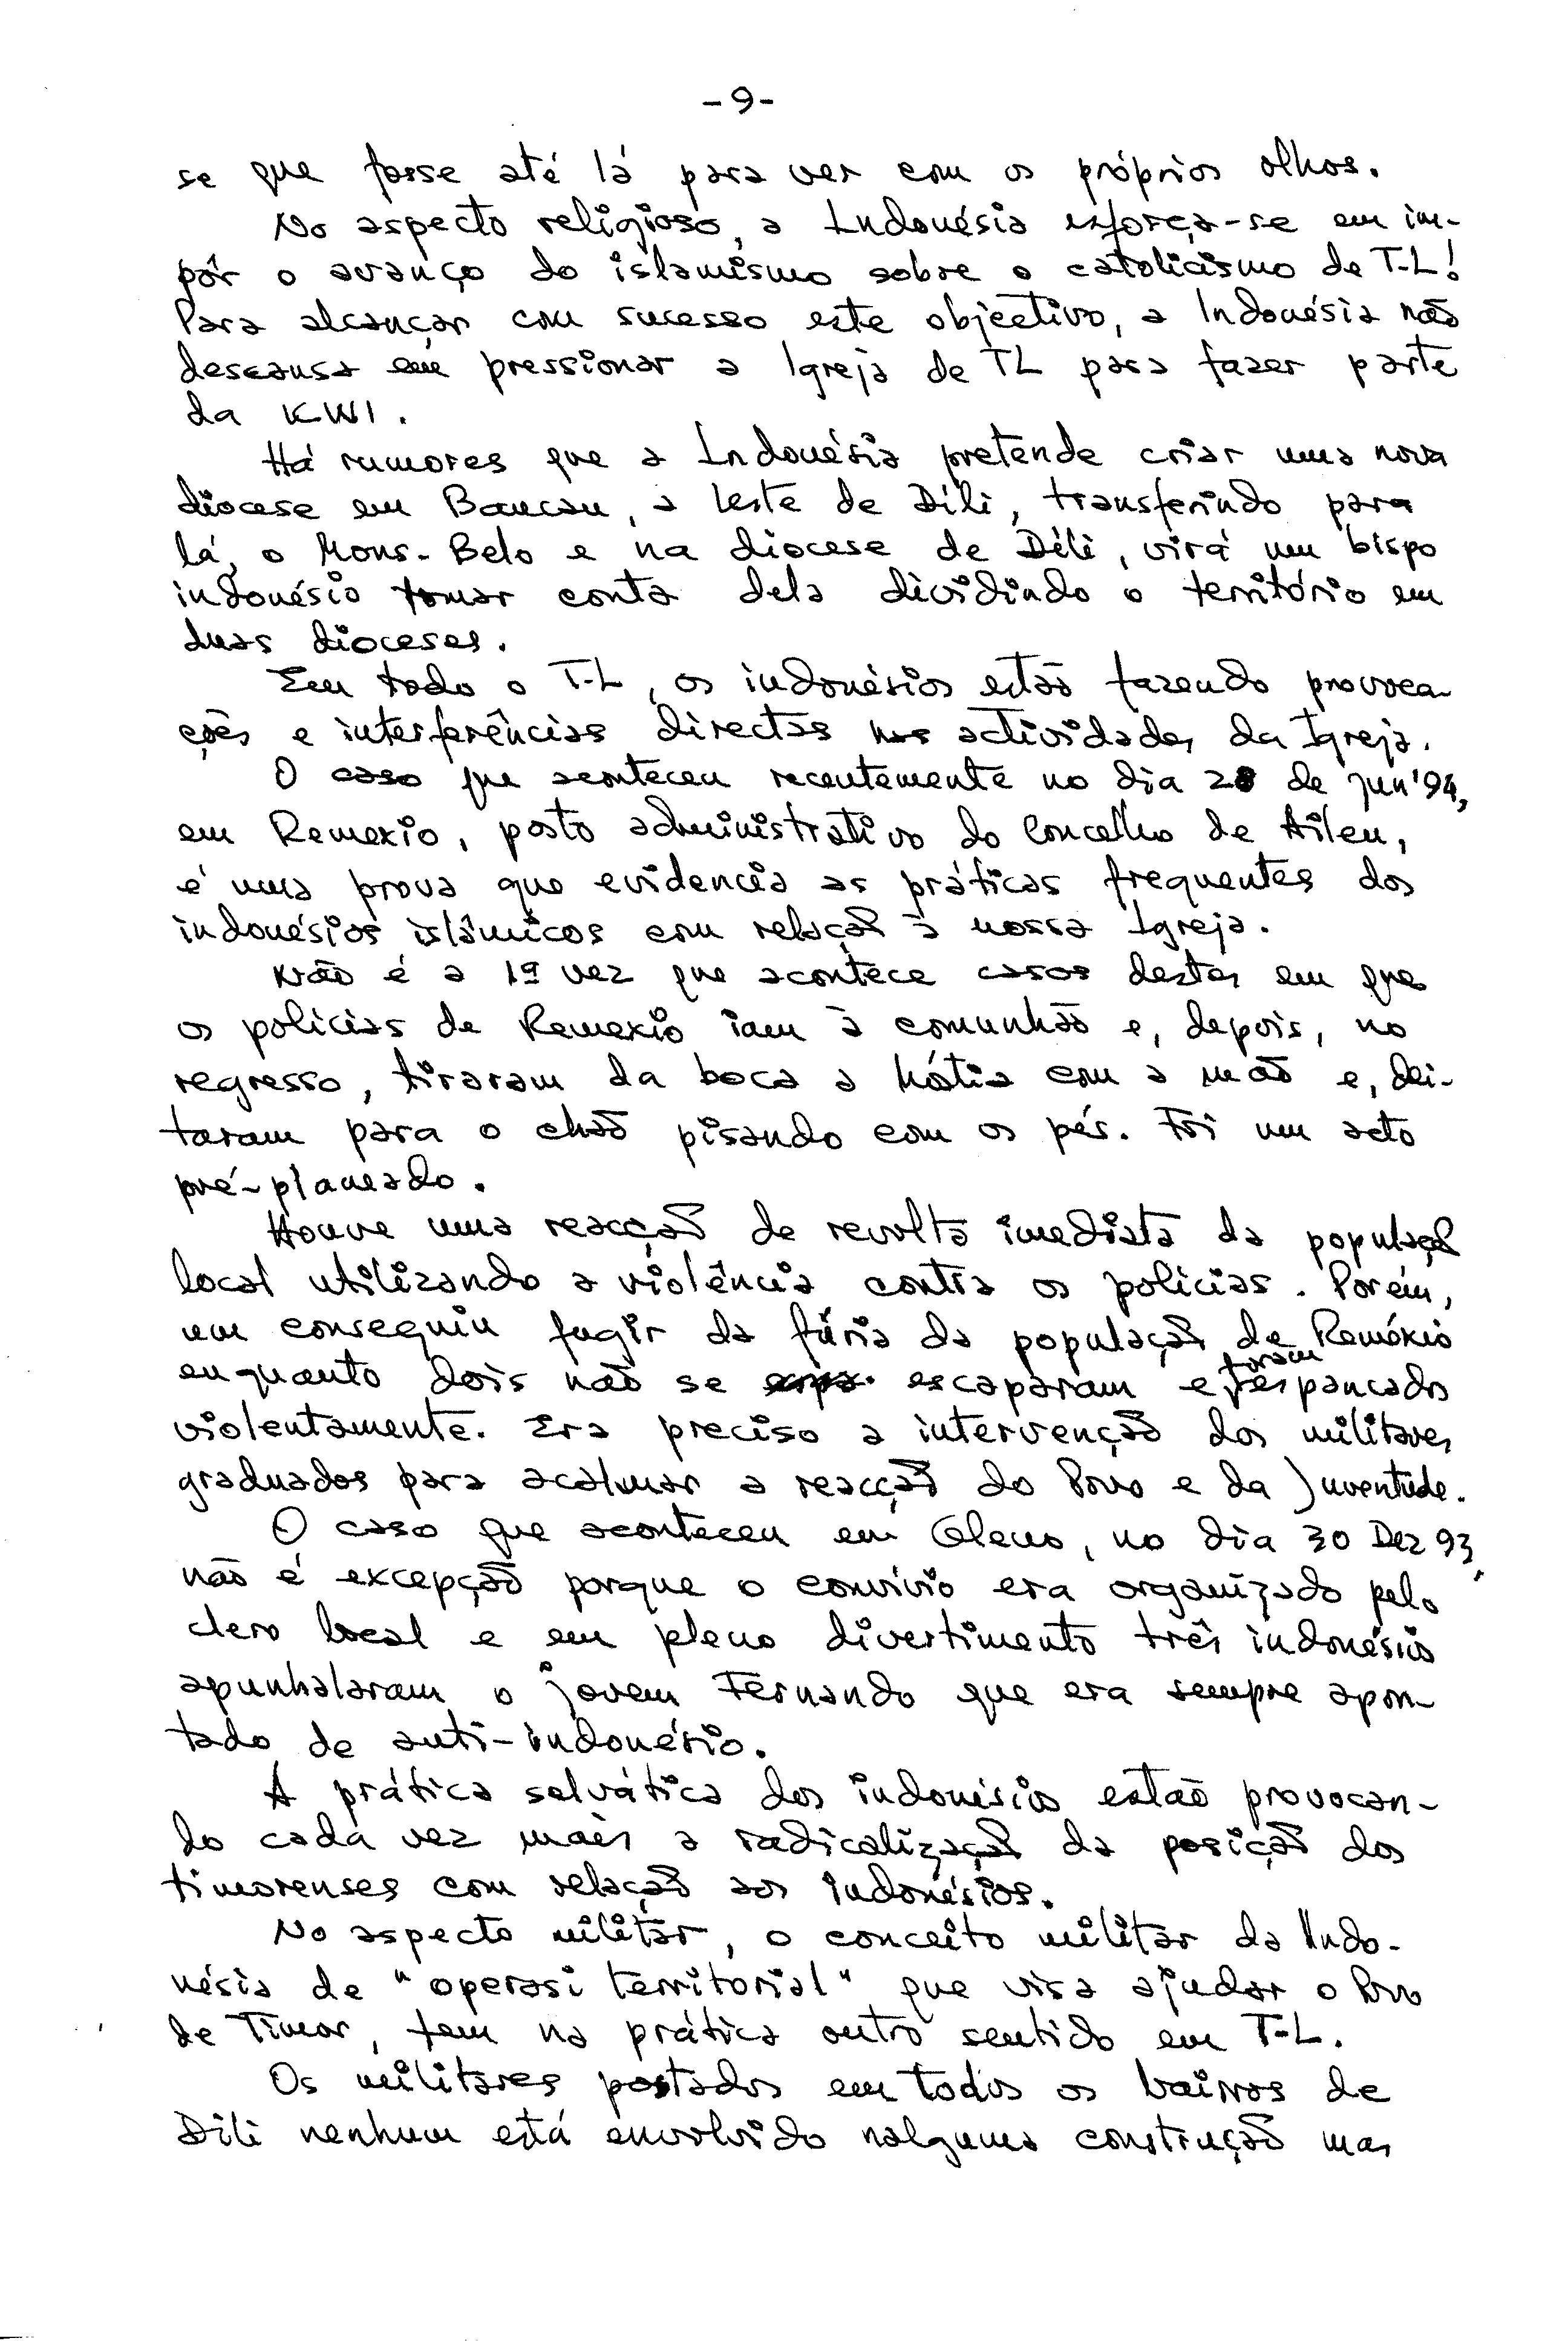 -9-
se que fosse até lá para ver com os próprios olhos.
No aspecto religioso, a Indonésia esforça-se em im-
pôr o avanço do islamismo sobre o catolicismo de T-L!
Para alcançar com sucesso este objectivo, a Indonésia não
descansa em pressionar a Igreja de TL para fazer parte
da KWI.
Há rumores que a Indonésia pretende criar uma nova
diocese em Baucau, a leste de Díli, transferindo para
lá, o Mons. Belo e na diocese de Díli, virá um bispo
indonésio tomar conta dela dividindo o território em
duas dioceses.
Em todo o T-L, os indonésios estão fazendo provoca-
ções e interferências directas nas actividades da Igreja.
O caso que aconteceu recentemente no dia 28 de Jun'94,
em Remexio, posto administrativo do Concelho de Aileu,
é uma prova que evidencia as práticas frequentes dos
indonésios islâmicos com relação à nossa Igreja.
Não é a 1ª vez que acontece casos destes em que
os polícias de Remexio iam à comunhão e, depois, no
regresso, tiraram da boca a hóstia com a mão e, dei-
taram para o chão pisando com os pés. Foi um acto
pré-planeado.
Houve uma reacção de revolta imediata da população
local utilizando a violência contra os polícias. Porém,
um conseguiu fugir da fúria da população de Reméxio
enquanto dois não se escaparam e foram espancados
violentamente. Era preciso a intervenção dos militares
graduados para acalmar a reacção do Povo e da Juventude.
O caso que aconteceu em Gleno, no dia 30 Dez 93,
não é excepção porque o convívio era organizado pelo
clero local e em pleno divertimento três indonésios
apunhalaram o jovem Fernando que era sempre apon-
tado de anti-indonésio.
A prática selvática dos indonésios estão provocan-
do cada vez mais a radicalização da posição dos
timorenses com relação aos indonésios.
No aspecto militar, o conceito militar da Indo-
nésia de "operasi territorial" que visa ajudar o Povo
de Timor, tem na prática outro sentido em T-L.
Os militares postados em todos os bairros de
Díli nenhum está envolvido nalguma construção mas